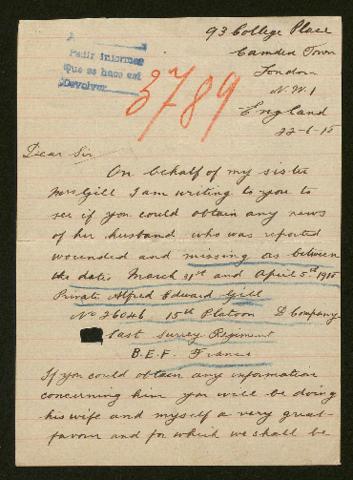 93 College Place
Camden Town
London
N.W.1
England
22-6-18
Pedir informes
Que se hace así
Devolver
3789
Dear Sir
On behalf of my sister
Mrs Gill I am writing to you to
see if you could obtain any news
of her husband who was reported
wounded and missing as between
the dates March 31st and April 5th 1918
Private Alfred Edward Gill
No 26046 15th Platoon D Company
East Surrey Regiment
B.E.F. France
If you could obtain any information
concerning him you will be doing
his wife and myself a very great
favour and for which we shall be